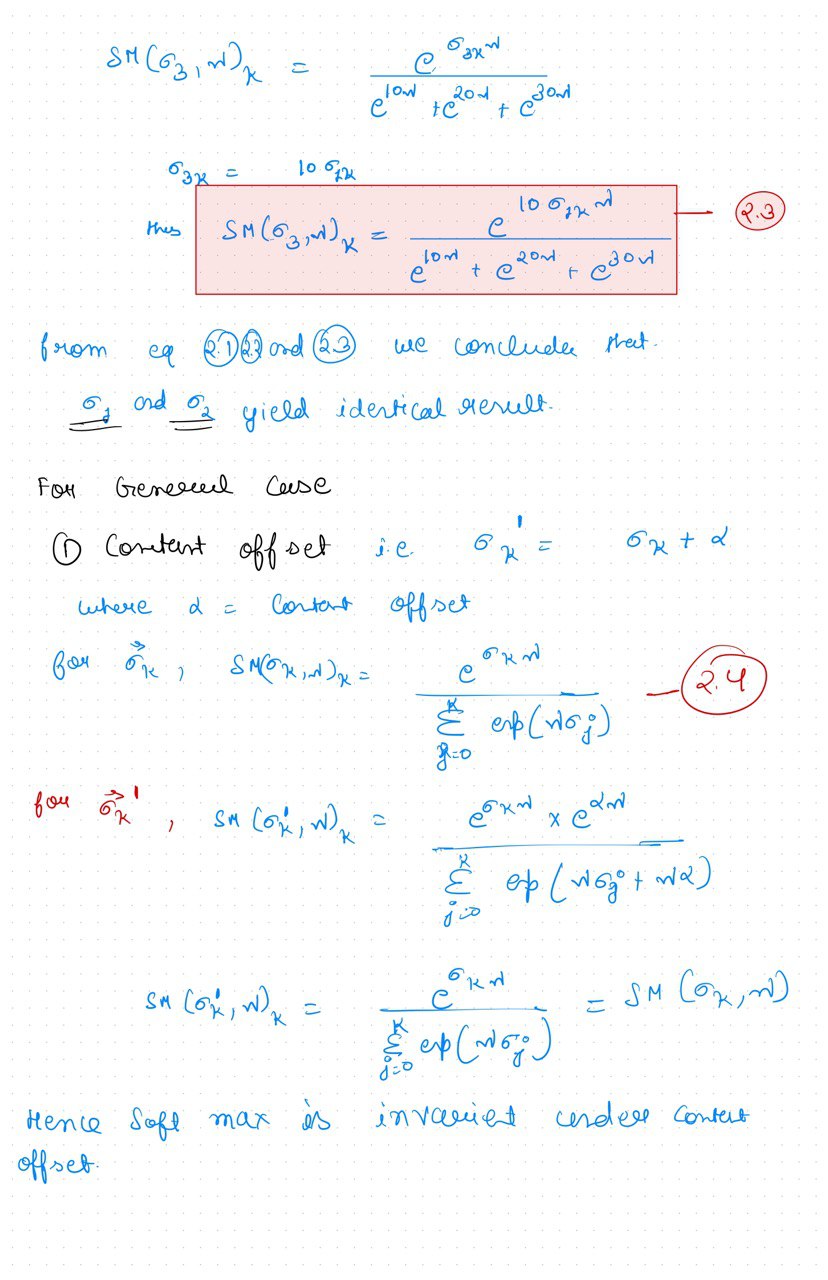 SM(σ₃, ν)ₖ = e^{σ₃ₖν} / (e^{10ν} + e^{20ν} + e^{30ν})
σ₃ₖ = 10 σ₁ₖ
thus SM(σ₃, ν)ₖ = e^{10 σ₁ₖ ν} / (e^{10ν} + e^{20ν} + e^{30ν}) — 2.3
from eq 2.1 2.2 and 2.3 we conclude that.
σ₁ and σ₂ yield identical result.
For General Case
① Constant offset i.e. σₖ' = σₖ + α
where α = Contant offset
for σ⃗ₖ, SM(σₖ, ν)ₖ = e^{σₖν} / Σ_{j=0}^{K} exp(νσⱼ) — 2.4
for σ⃗ₖ', SM(σₖ', ν)ₖ = e^{σₖν} × e^{αν} / Σ_{j=0}^{K} exp(νσⱼ + να)
SM(σₖ', ν)ₖ = e^{σₖν} / Σ_{j=0}^{K} exp(νσⱼ) = SM(σₖ, ν)
Hence Soft max is invarient under contant
offset.